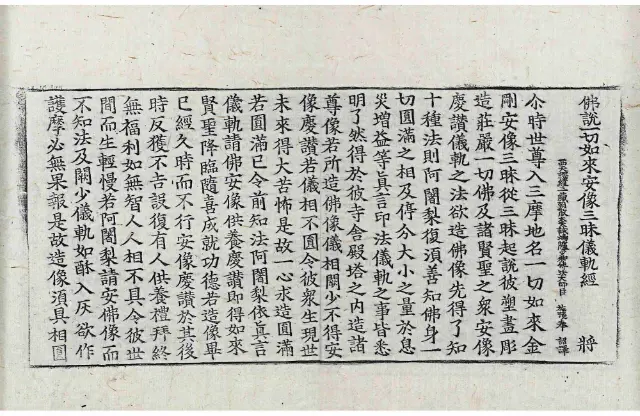 佛說一切如來安像三昧儀軌經 將
西天譯經三藏朝散大夫試鴻臚 奉 詔譯
尒時世尊入三摩地名一切如來金
剛安像三昧從三昧起說彼塑畫彫
造莊嚴一切佛及諸賢聖之衆安像
慶讚儀軌之法欲造佛像先得了知
十種法則阿闍梨復須善知佛身一
切圓滿之相及停分大小之量於息
灾增益等真言印法儀軌之事皆悉
明了然得於彼寺舍殿塔之內造諸
尊像若所造佛像儀相闕少不得安
像慶讚若儀相不圓令彼衆生現世
未來得大苦怖是故一心求造圓滿
若圓滿已令前知法阿闍梨依真言
儀軌請佛安像供養慶讚即得如來
賢聖降臨隨喜成就功德若造像畢
已經久時而不行安像慶讚於其後
時反獲不吉設復有人供養禮拜終
無福利如無智人人相不具令彼世
間而生輕慢若阿闍梨請安佛像而
不知法及闕少儀軌如酥入灰欲作
護摩必無果報是故造像須具相圓